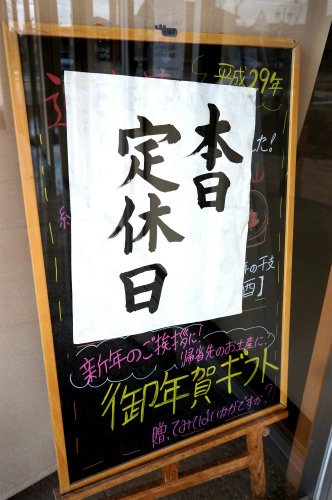 平成29年
本日
定休日
た!
年の干支
酉】
新年のご挨拶に!
帰省先のお土産に!
御年賀ギフト
贈ってみてはいかがですか?